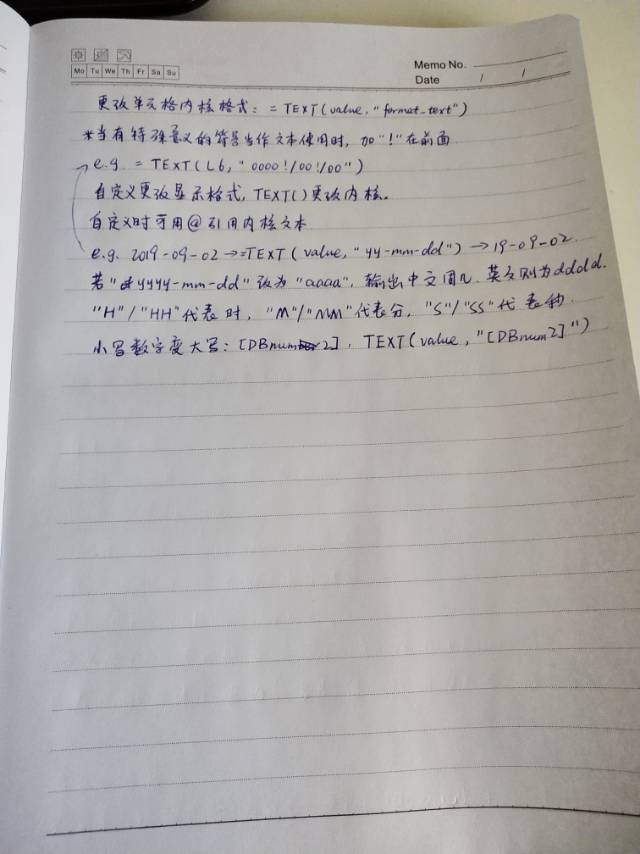 Mo Tu We Th Fr Sa Su
Memo No.
Date / /
更改单元格内核格式：= TEXT(value,"format_text")
*当有特殊意义的符号当作文本使用时，加"!"在前面
e.g. = TEXT(L6,"0000!/00!/00")
自定义更改显示格式，TEXT()更改内核。
自定义时可用@引用内核文本
e.g. 2019-09-02→=TEXT(value,"yy-mm-dd")→19-09-02.
若"yyyy-mm-dd"改为"aaaa"，输出中文周几，英文则为dddd.
"H"/"HH"代表时，"M"/"MM"代表分，"S"/"SS"代表秒
小写数字变大写：[DBnum2]，TEXT(value,"[DBnum2]")